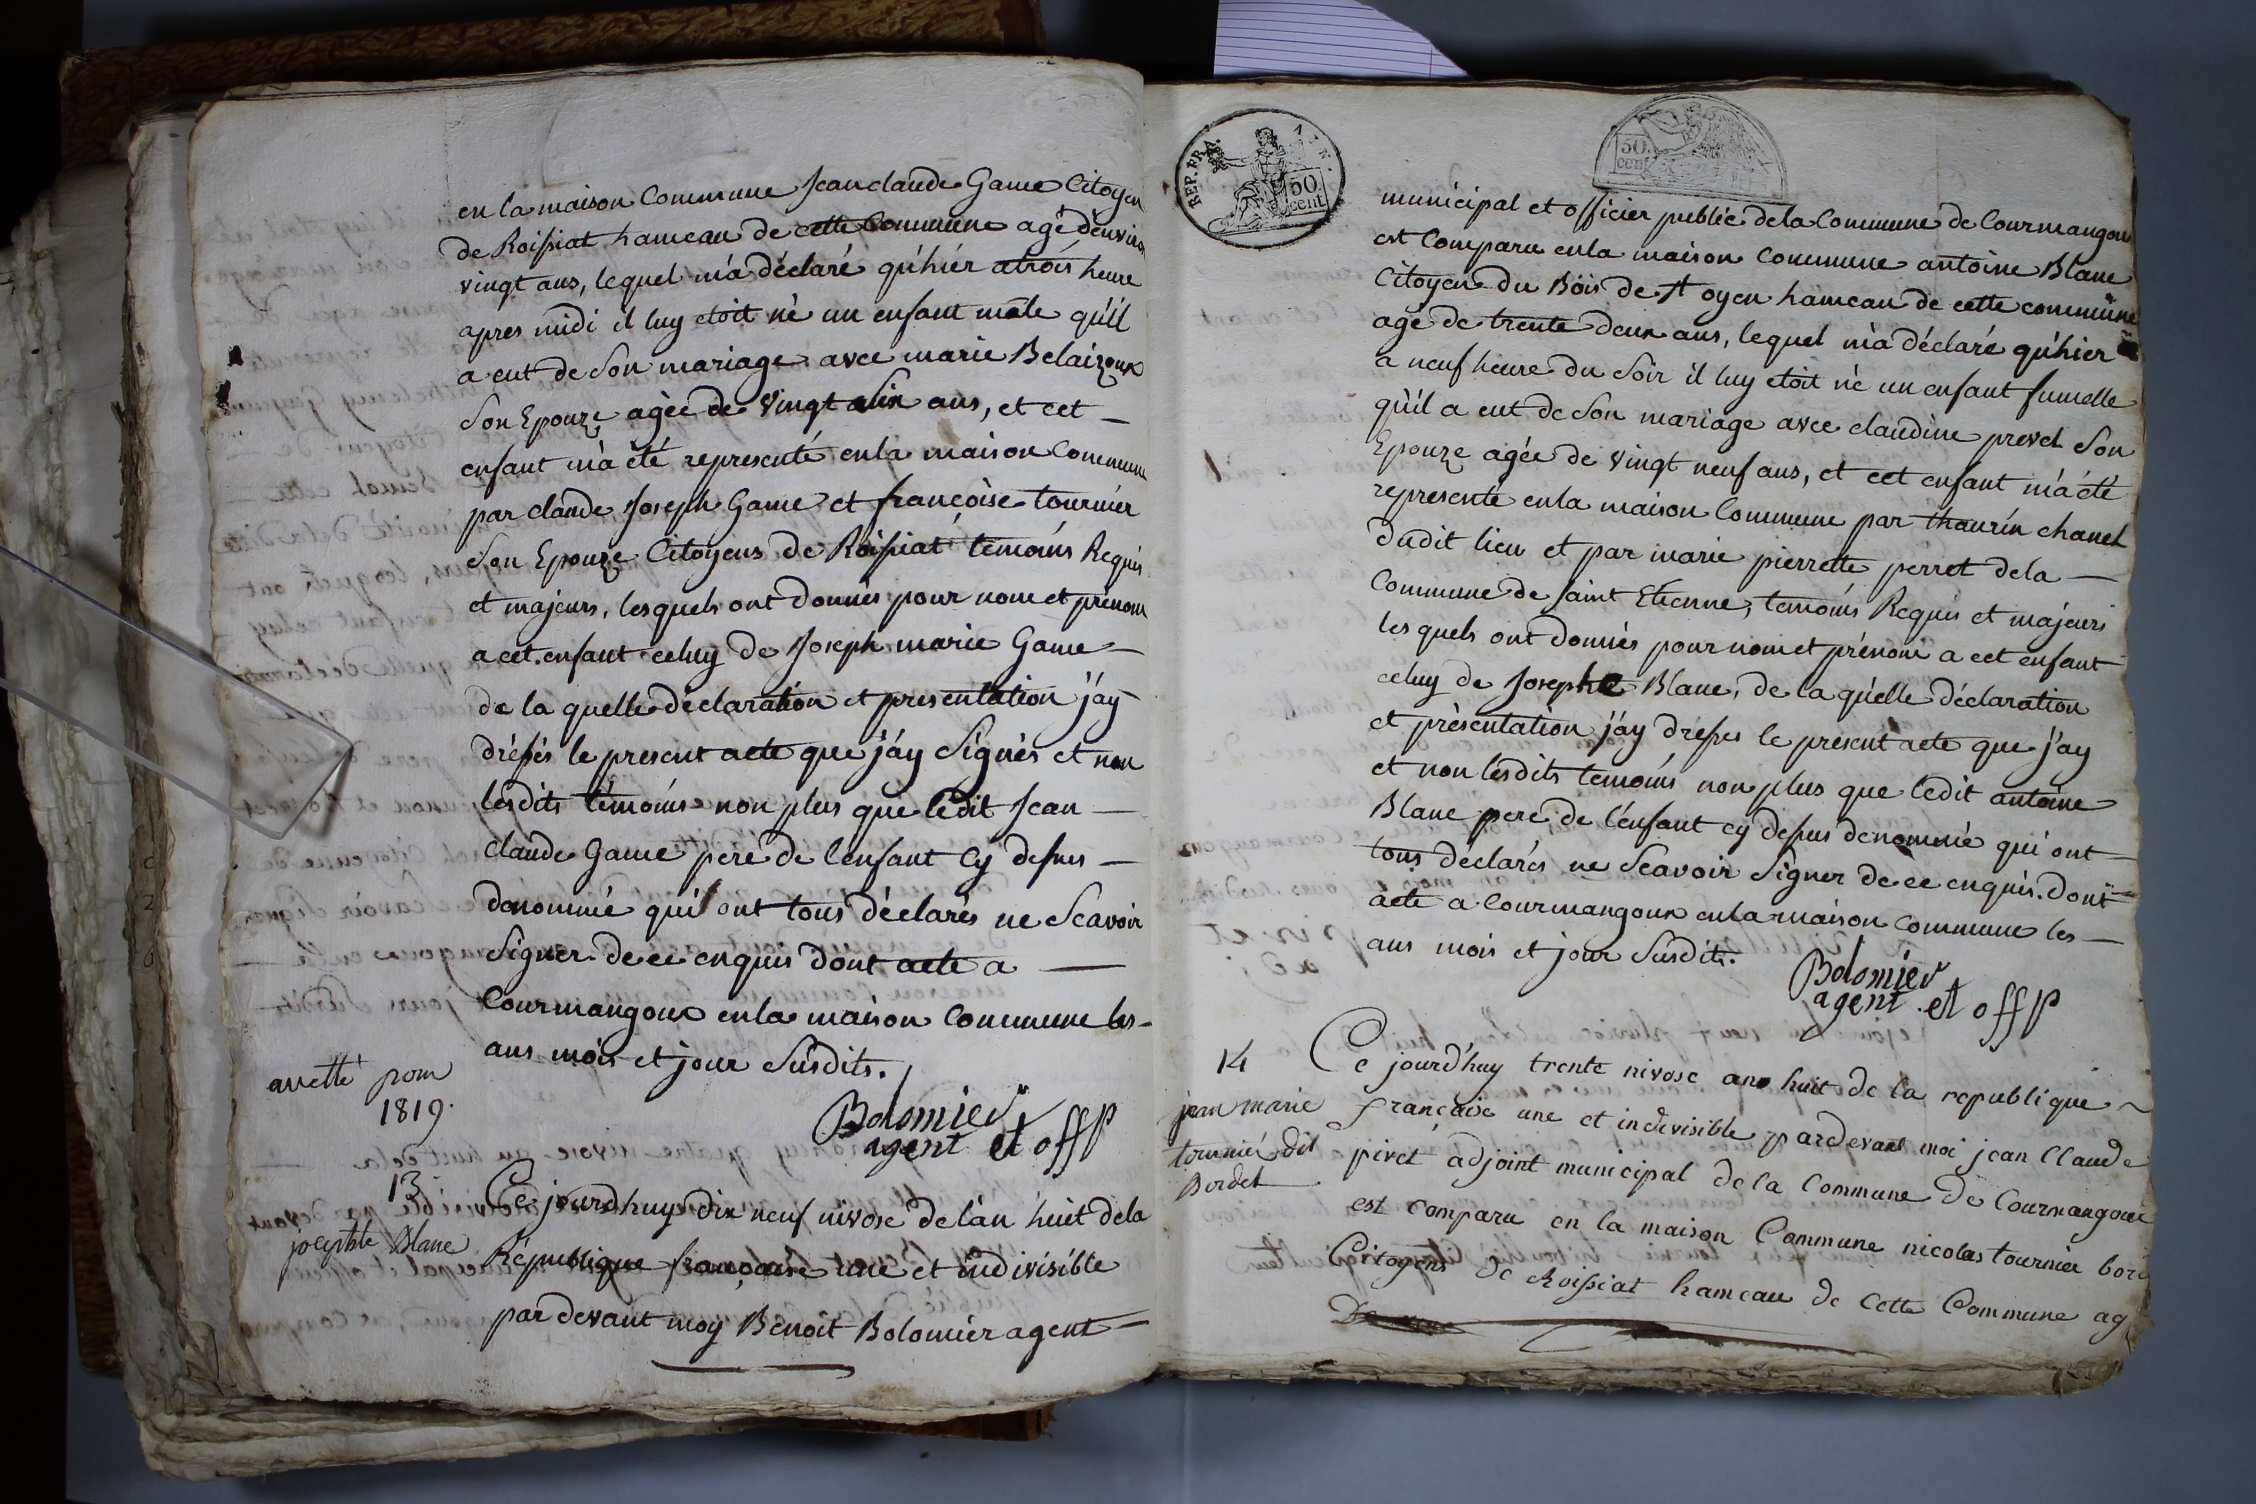 en la maison Commune Jean claude Game Citoyen
de Roissiat hameau de cette Commune agé d'environ
vingt ans, lequel m'a déclaré qu'hiér a trois heure
apres midi il luy etoit né un enfant mâle qu'il
a eut de Son mariage avec marie Belaizoux
Son Epouze agée de vingt six ans, et cet —
enfant m'a été representé en la maison Commune
par claude Joseph Game et françoise tournier
Son Epouze Citoyens de Roissiat temoins Requis
et majeurs, lesquels ont donnés pour nom et prénom
a cet enfant celuy de Joseph marie Game —
de la quelle déclaration et presentation j'ay
dréssés le present acte que j'ay Signés et non
lesdits témoins non plus que ledit Jean —
Claude Game pere de l'enfant Cy dessus —
denommé qui ont tous déclarés ne Scavoir
Signer de ce enquis dont acte a —
Courmangoux en la maison Commune les —
ans mois et jour Susdits.
Bolomier
agent et off p
1819.
13.
josephte Blanc
Ce jourd'huy dix neuf nivose de l'an huit de la
République française une et indivisible
par devant moy Benoit Bolomier agent —
REP. FRA.
50
cent
50
cent
municipal et officier public de la Commune de Courmangoux
est Comparu en la maison Commune antoine Blanc
Citoyen du Bois de St oyen hameau de cette commune
agé de trente deux ans, lequel m'a déclaré qu'hier
a neuf heure du Soir il luy etoit né un enfant fumelle
qu'il a eut de Son mariage avec claudine prevel Son
Epouze agée de vingt neuf ans, et cet enfant m'a été
representé en la maison Commune par thaurin chanel
dudit lieu et par marie pierrette perret de la —
Commune de saint Etienne, temoins Requis et majeurs
les quels ont donnés pour nom et prénom a cet enfant
celuy de Josephte Blanc, de la quelle déclaration
et présentation j'ay dresses le present acte que j'ay
et non lesdits temoins non plus que ledit antoine
Blanc pere de l'enfant cy dessus denommé qui ont
tous déclarés ne Scavoir Signer de ce enquis. Dont
acte a Courmangoux en la maison commune les —
ans mois et jour Susdits.
Bolomier
agent et off p
14
jean marie
tournié dit
Bordet
Ce jourd'huy trente nivose an huit de la republique
française une et indivisible pardevant moi jean Claude
pivet adjoint municipal de la Commune de Courmangoux
est comparu en la maison Commune nicolas tournier
Citoyens de Roissiat hameau de Cette Commune ag